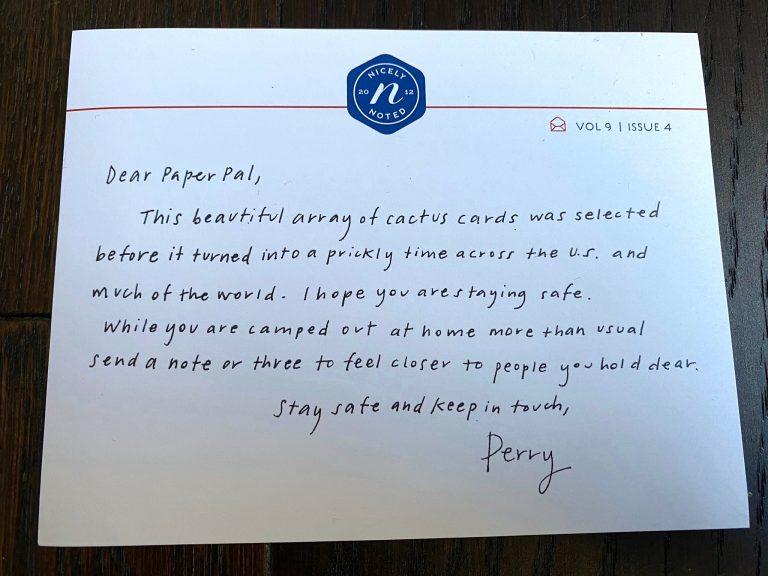 NICELY
20 n 12
NOTED
VOL 9 | ISSUE 4
Dear Paper Pal,
This beautiful array of cactus cards was selected
before it turned into a prickly time across the U.S. and
much of the world. I hope you are staying safe.
While you are camped out at home more than usual
send a note or three to feel closer to people you hold dear.
Stay safe and keep in touch,
Perry